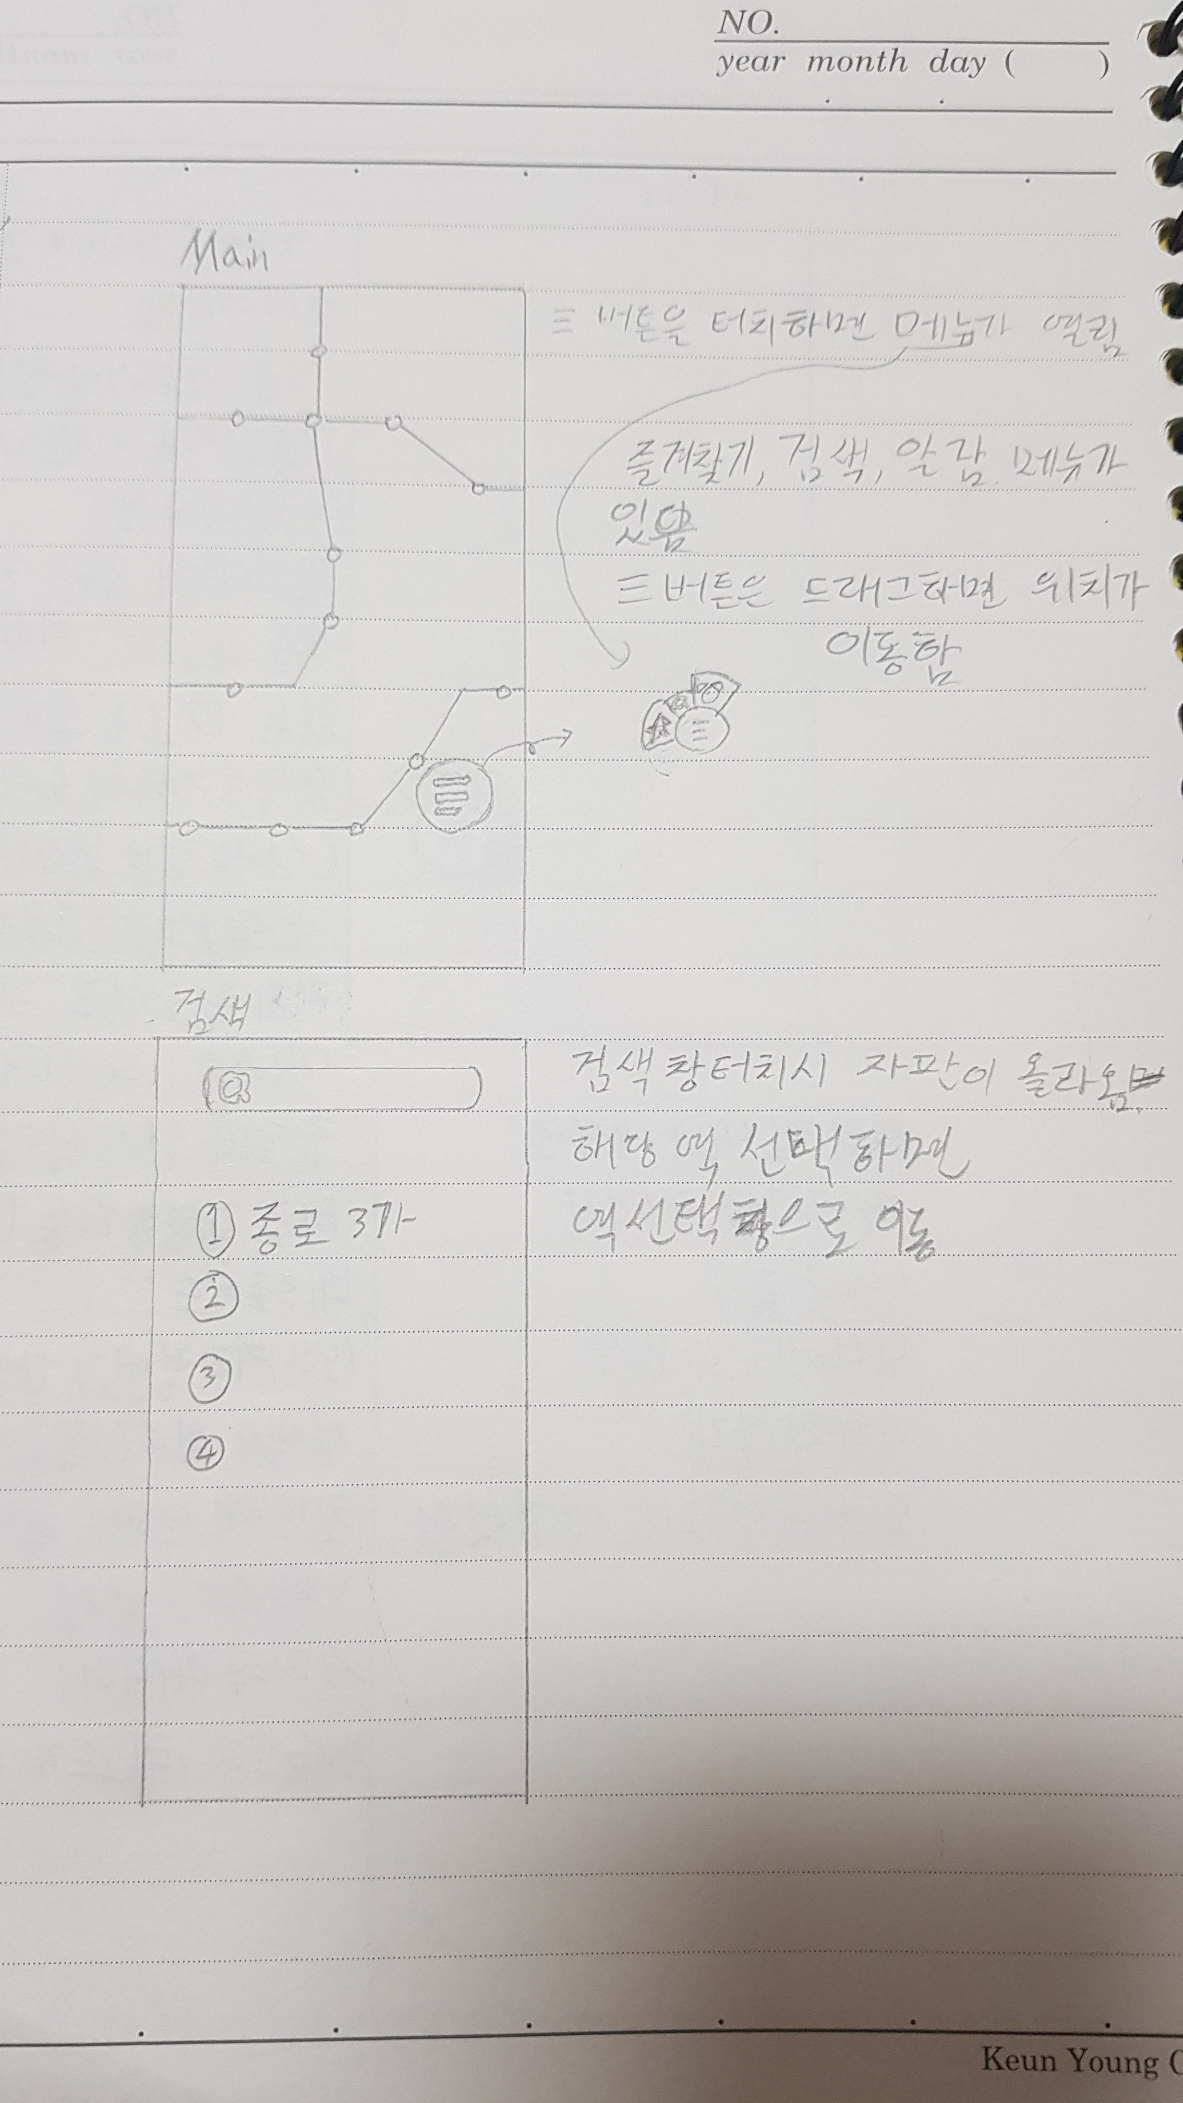 NO.
year month day ( )
Main
三 버튼을 터치하면 메뉴가 열림
즐겨찾기, 검색, 알람 메뉴가
있음
三 버튼은 드래그하면 위치가
이동함
검색
검색창터치시 자판이 올라옴
해당 역 선택하면
① 종로 3가
역선택창으로 이동
②
③
④
Keun Young